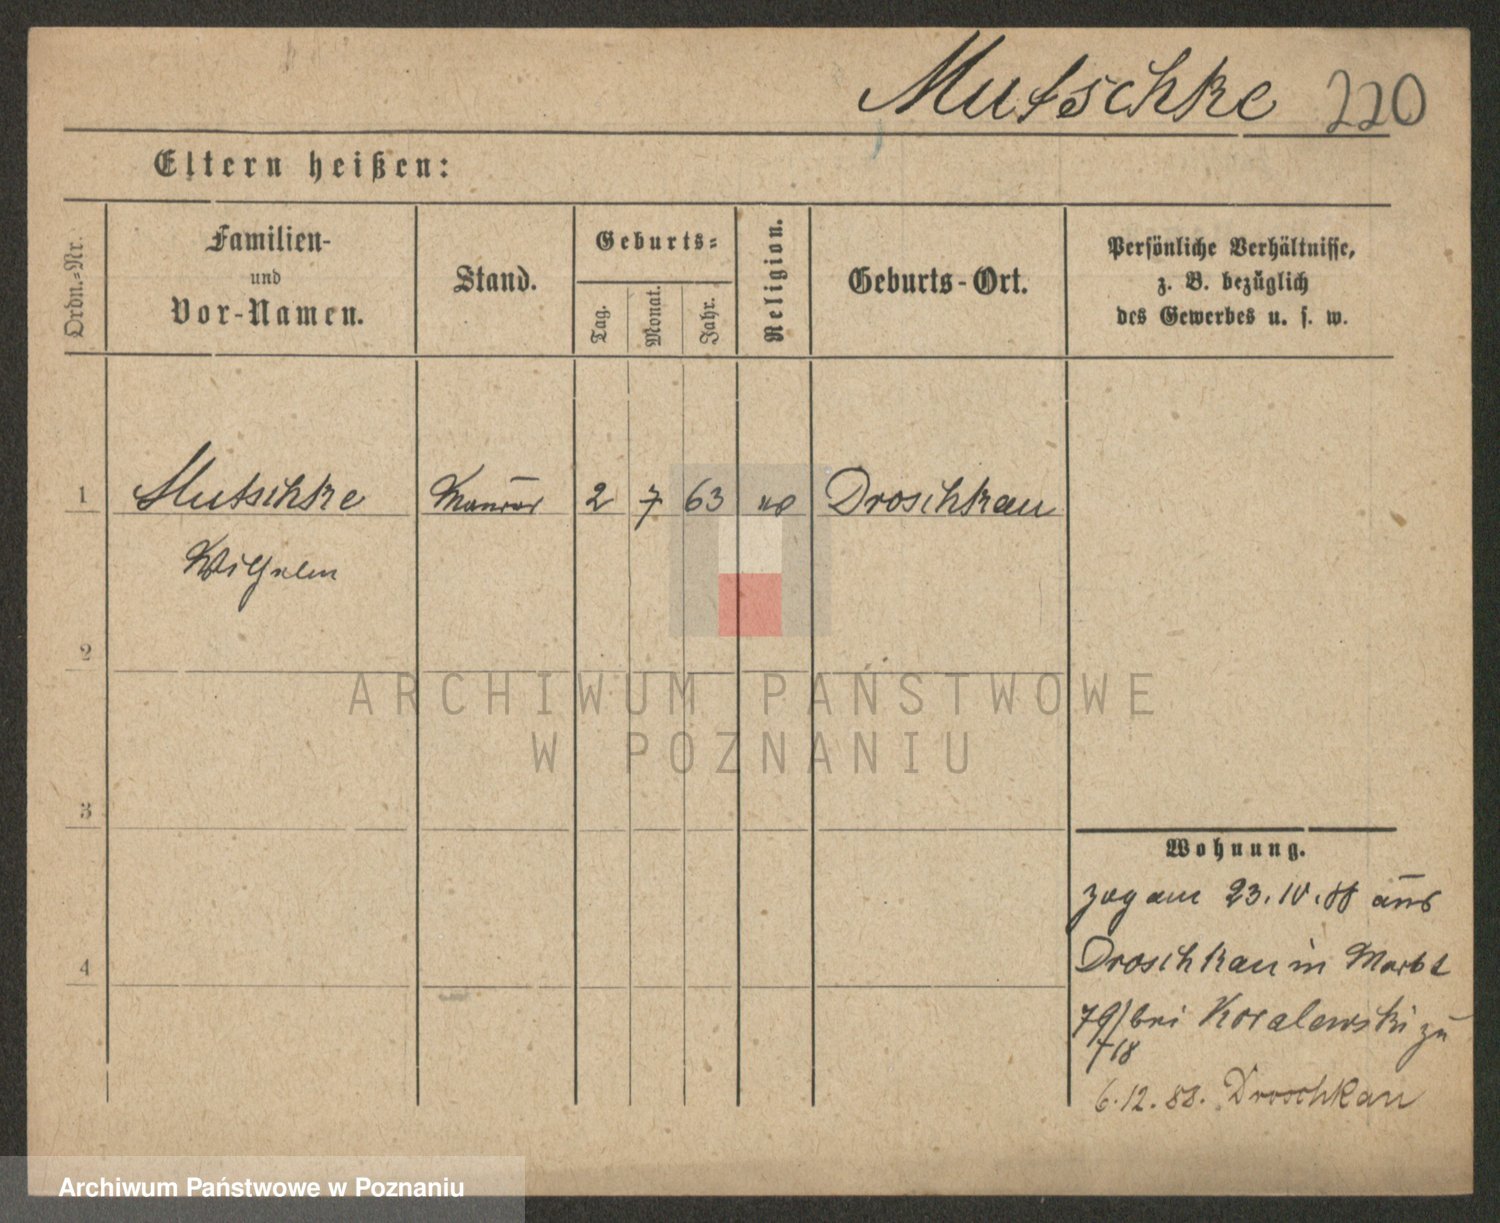 Mutschke 220
Eltern heißen:
Ordn.-Nr.
Familien-
und
Vor-Namen.
Stand.
Geburts-
Tag.
Monat.
Jahr.
Religion.
Geburts-Ort.
Persönliche Verhältnisse,
z. B. bezüglich
des Gewerbes u. s. w.
1 Mutschke Maurer 2 7 63 Droschkau
Wilhelm
2
3
4
ARCHIWUM PAŃSTWOWE
W POZNANIU
Wohnung.
zog am 23.IV.88 aus
Droschkau in Markt
79/ bei Koralewski zu
718
6.12.88. Droschkau
Archiwum Państwowe w Poznaniu